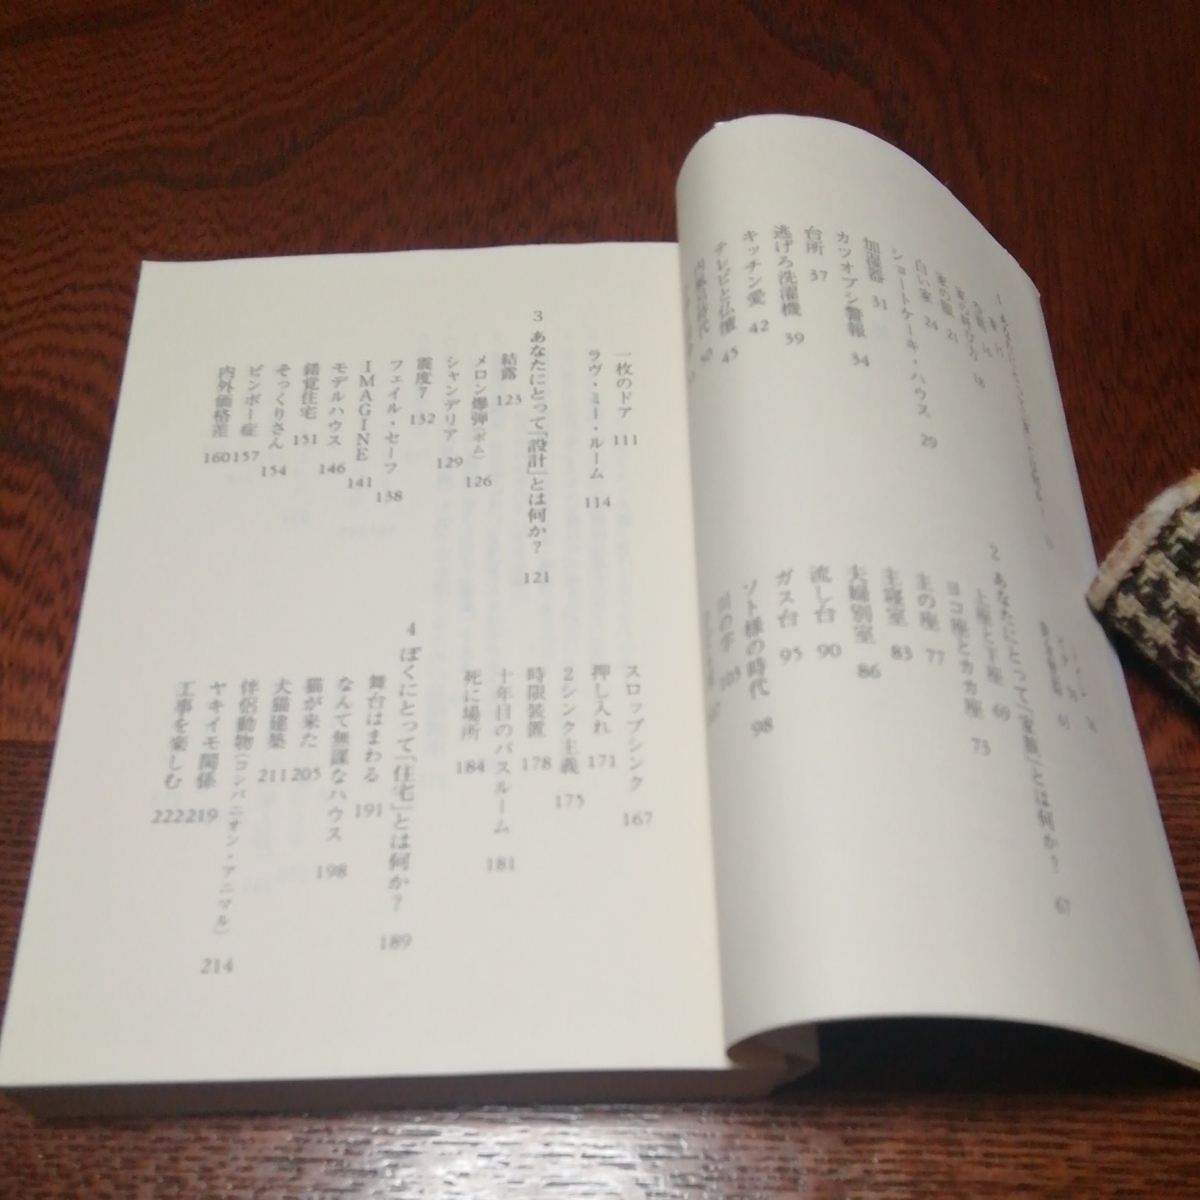 家 15
家の呼び方 18
家の顔 21
白い家 24
ショートケーキ・ハウス 29
加湿器 31
カツオブシ警報 34
台所 37
逃げろ洗濯機 39
キッチン愛 42
テレビと仏壇 45
2 あなたにとって「家族」とは何か? 67
上座と下座 69
ヨコ座とカカ座 73
主の座 77
主寝室 83
夫婦別室 86
流し台 90
ガス台 95
ソト様の時代 98
103
一枚のドア 111
ラヴ・ミー・ルーム 114
3 あなたにとって「設計」とは何か? 121
結露 123
メロン爆弾(ボム) 126
シャンデリア 129
震度7 132
フェイル・セーフ 138
IMAGINE 141
モデルハウス 146
錯覚住宅 151
そっくりさん 154
ビンボー症 157
内外価格差 160
スロップシンク 167
押し入れ 171
2シンク主義 175
時限装置 178
十年目のバスルーム 181
死に場所 184
4 ぼくにとって「住宅」とは何か? 189
舞台はまわる 191
なんて無謀なハウス 198
猫が来た 205
犬猫建築 211
伴侶動物(コンパニオン・アニマル) 214
ヤキイモ関係 219
工事を楽しむ 222